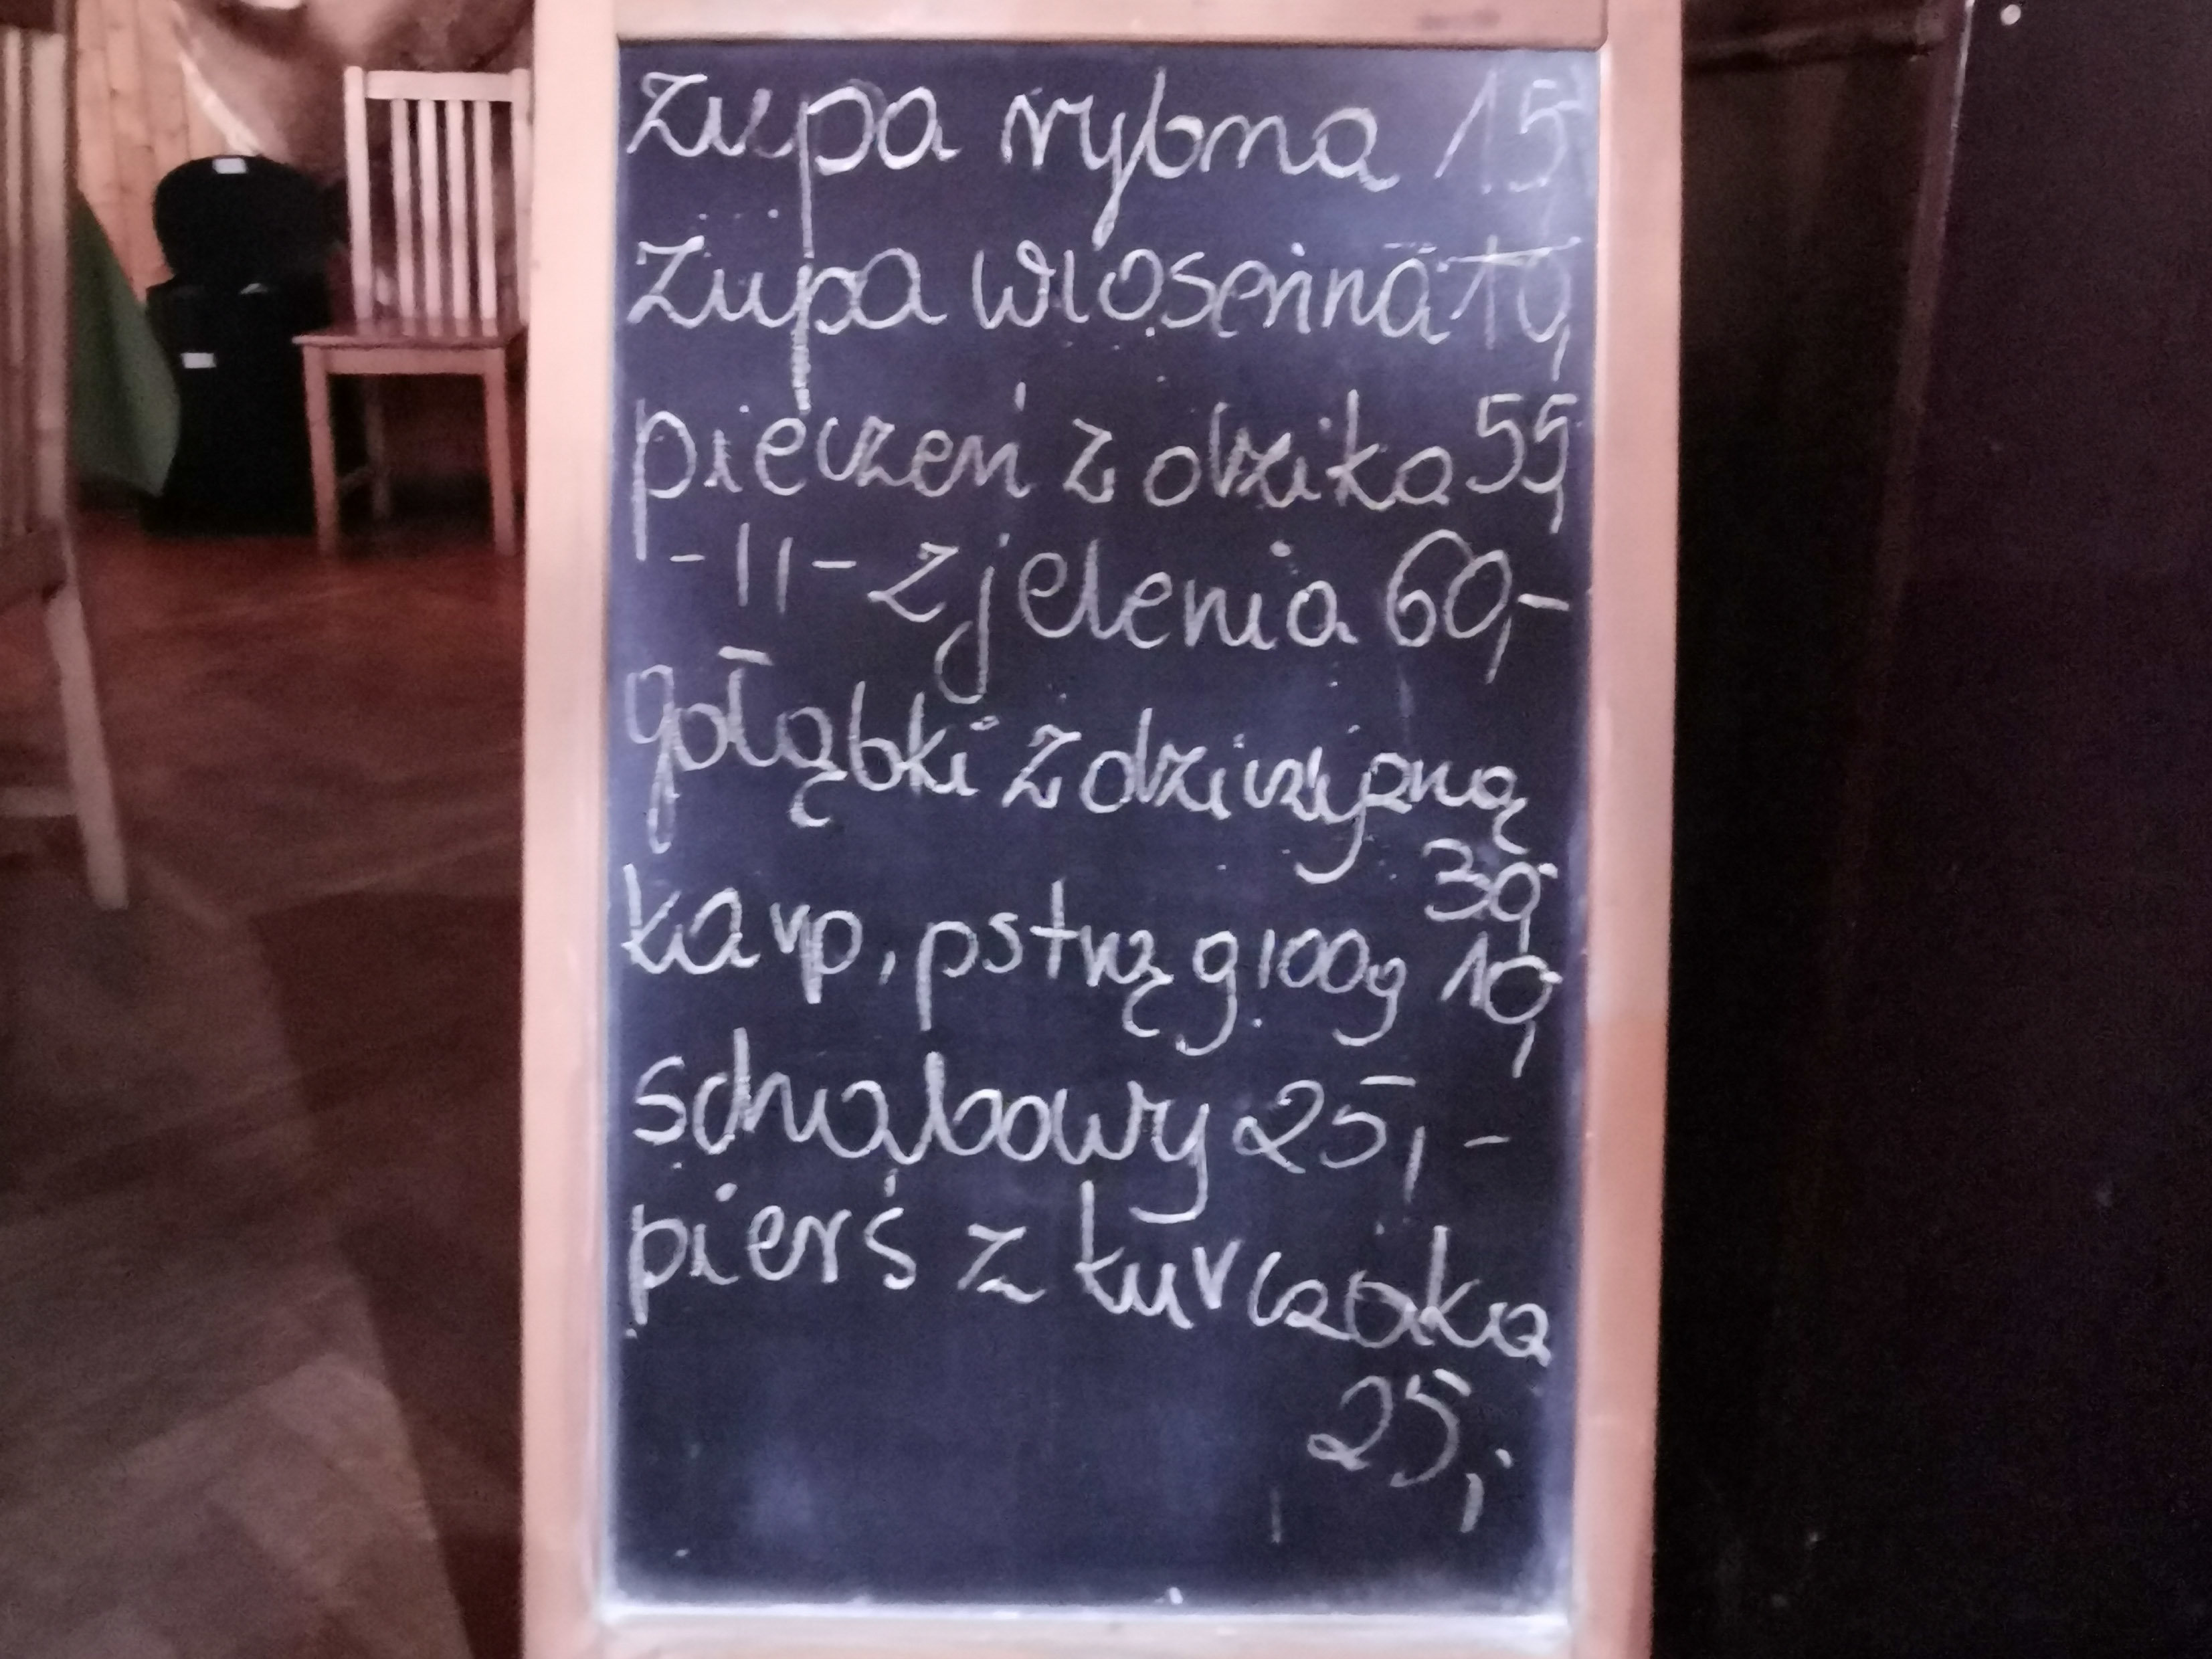 zupa rybna 15,-
zupa wiosenna 10,-
pieczeń z dzika 55,-
-11- z jelenia 60,-
gołąbki z dziczyzną
30,-
karp, pstrąg 100g 10,-
schabowy 25,-
pierś z kurczaka
25,-